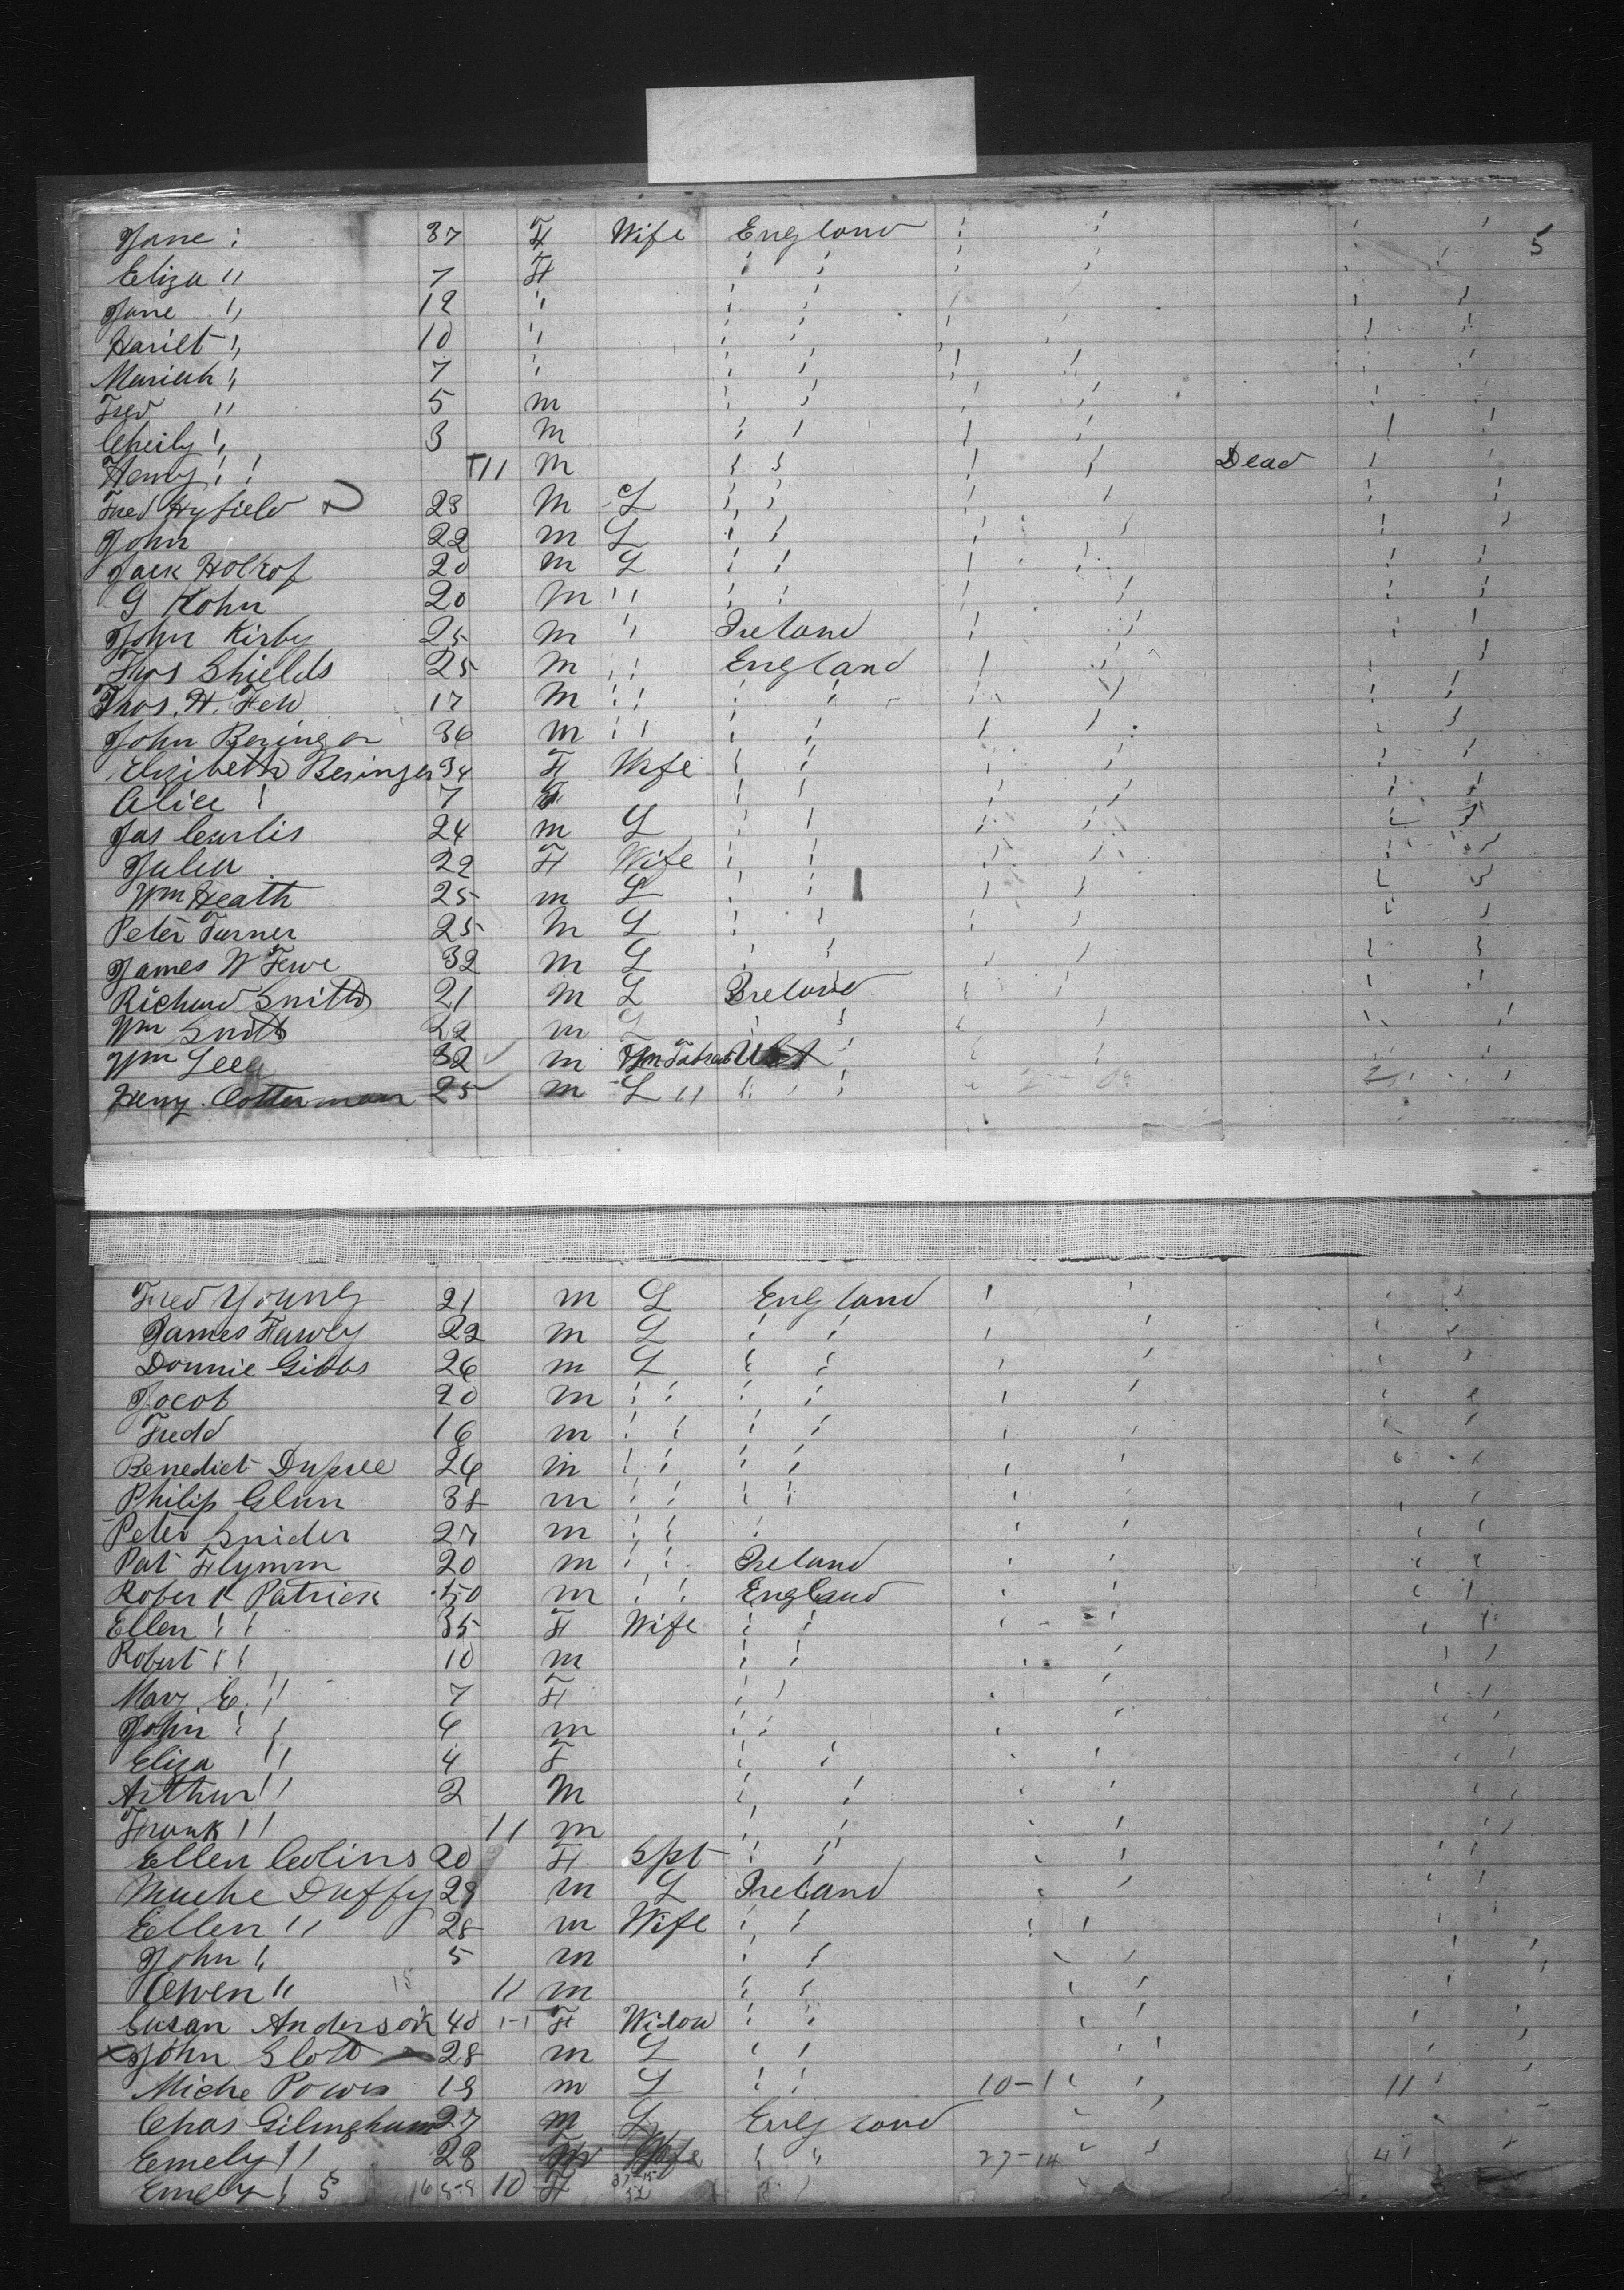 5
Jane " 37 F Wife England " "
Eliza " 7 F " " " "
Jane " 12 " " " " "
Hariet " 10 " " " " "
Mariah " 7 " " " " "
Fred " 5 m " " " "
Cheily " 3 m " " " "
Henry " 11 m " " " " Dead
Fred Hyfield 23 m L " " " "
John 22 m L " " " "
Jack Holrof 20 m L " " " "
G Kohn 20 m " " " " "
John Kirby 25 m " Ireland " "
Thos Shields 25 m " England " "
Thos. H. Feld 17 m " " " " "
John Beringer 36 m " " " " "
Elizibeth Beringer 34 F Wife " " " "
Alice " 7 F " " " "
Jas Curlis 24 m L " " " "
Julia 22 F Wife " " " "
Wm Heath 25 m L " " " "
Peter Turner 25 m L " " " "
James W Fewe 32 m L " " " "
Richard Smith 21 m L Ireland " "
Wm Smith 22 m L " " " "
Wm Leeg 32 m "
Heny Cotterman 25 m L " " " "
Fred Young 21 m L England " "
James Fawly 22 m L " " " "
Donnie Gibbs 26 m L " " " "
Jocob 20 m " " " " "
Fredd 16 m " " " " "
Benedict Dupree 26 m " " " " "
Philip Glun 38 m " " " " "
Peter Snider 27 m " " " "
Pat Flymm 20 m " " Ireland " "
Robert Patrick 50 m " " England " "
Ellen " 35 F Wife " " " "
Robert " 10 m " " " "
Mary E. " 7 F " " " "
John " 6 m " " " "
Eliza " 4 F " " " "
Arthur " 2 m " " " "
Frank " 11 m " " " "
Ellen Colins 20 F Spt " " " "
Muche Duffy 29 m L Ireland " "
Ellen " 28 m Wife " " " "
John " 5 m " " " "
Owen " 11 m " " " "
Susan Anderson 40 F Widow " " " "
John Slott 28 m L " " " "
Miche Powers 19 m L " " 10-1 " " 11
Chas Gilingham 27 m L England " "
Emely " 28 Wife " " 27-14 " " 4
Emely " 10 F " "